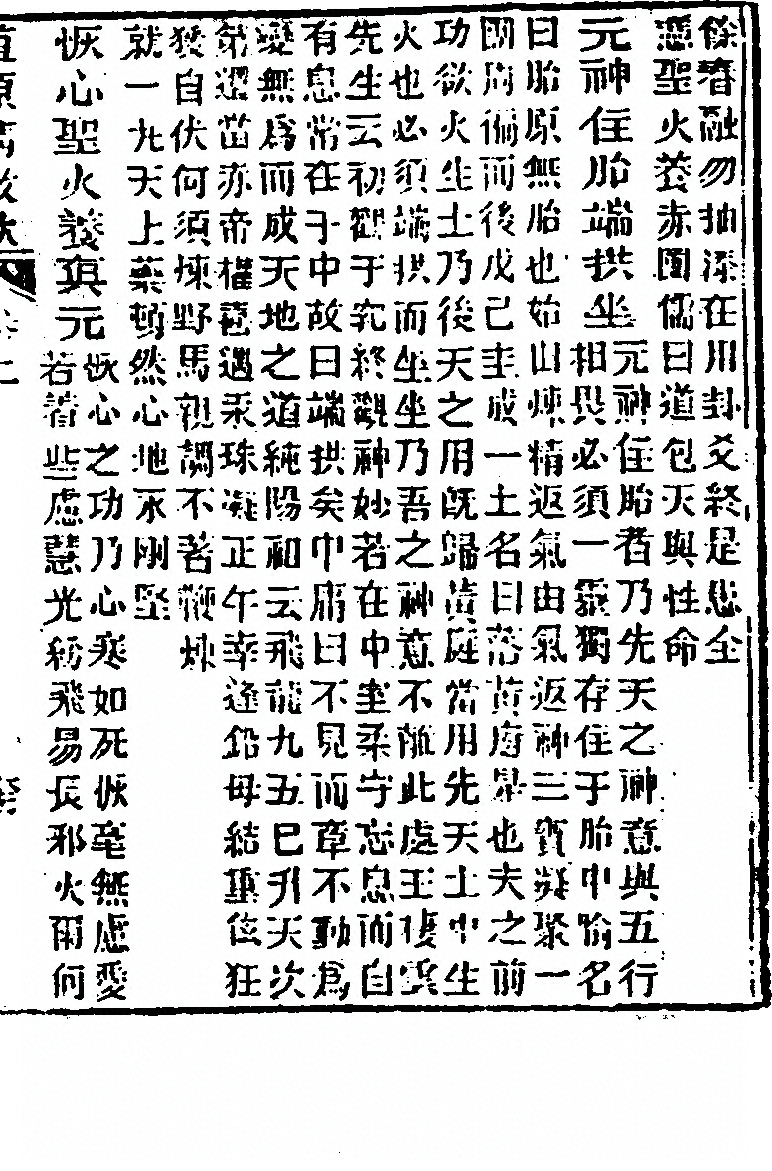 條春融勿抽添在用卦爻終是忠全
憑聖火養赤團儒曰道包天與性命
元神住胎端拱坐元神住胎者乃先天之神意與五行
相畏必須一靈獨存住于胎中喻名
曰胎原無胎也始由煉精返氣由氣返神三寶凝聚一
團周徧而後戊己圭成一土名曰落黃房是也夫之前
功欲火生土乃後天之用既歸黃庭當用先天土中生
火也必須端拱而坐坐乃吾之神意不離此處王棲雲
先生云初觀于究終觀神妙若在中圭柔守忘息而自
有息常在于中故曰端拱矣中庸曰不見而章不動為
變無為而成天地之道純陽和云飛龍九五已升天次
第還當赤帝權喜遇汞珠凝正午幸逢鉛母結重
狂猿自伏何須煉野馬親調不著鞭煉
就一九天上藥頓然心地永剛堅
恢心聖火養真元恢心之功乃心寒如死恢毫無慮愛
若著些慮慧光紛飛易長邪火爾何